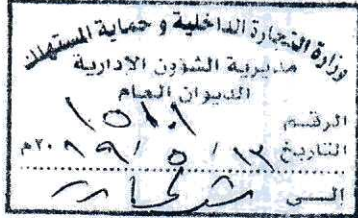 وزارة التجارة الداخلية و حماية المستهلك
مديرية الشؤون الإدارية
الديوان العام
الرقم
التاريخ ١٣ / ٥ / ٢٠١٩م
إلى